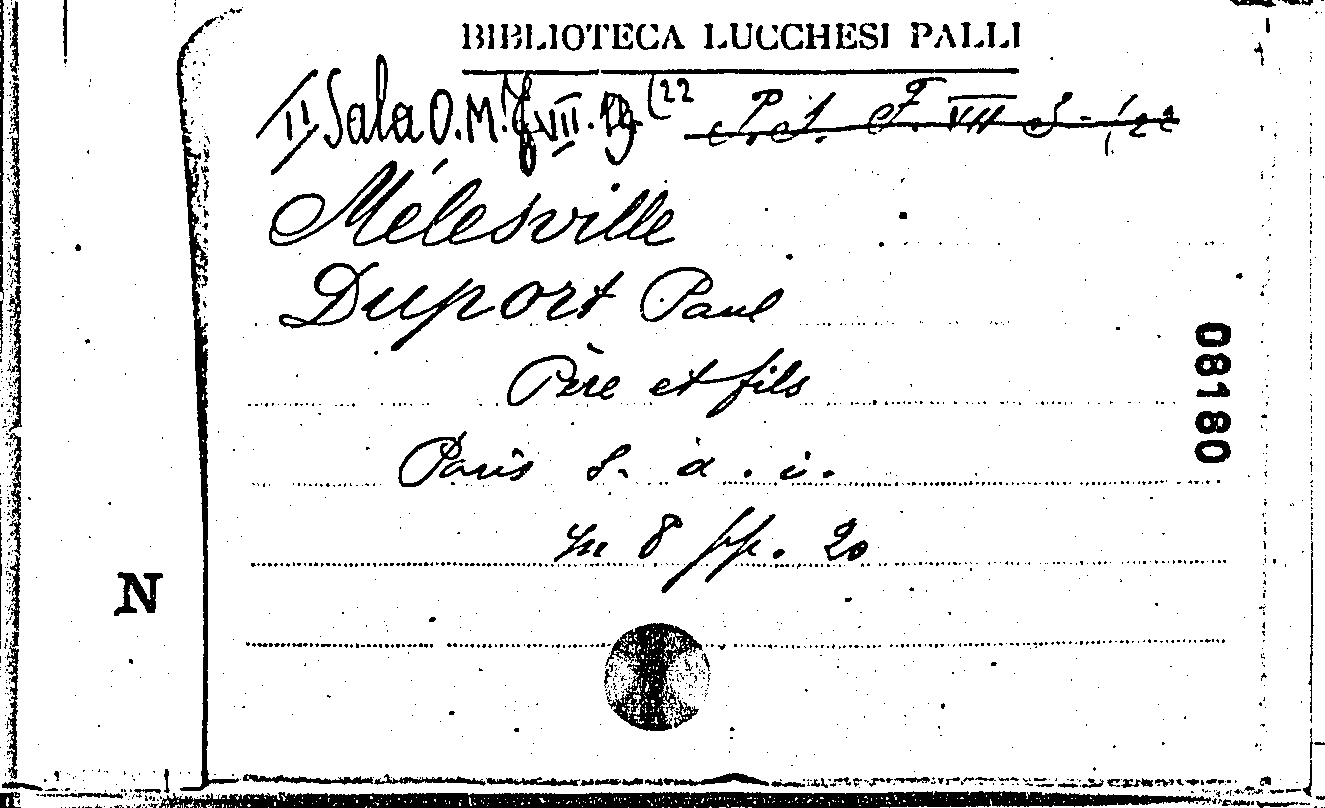 BIBLIOTECA LUCCHESI PALLI
II Sala O.M. VII. 19 (22 P.S. F. VII S-(22
Mélesville
Duport Paul
Père et fils
Paris S. d. i.
in 8 pp. 20
08180
N